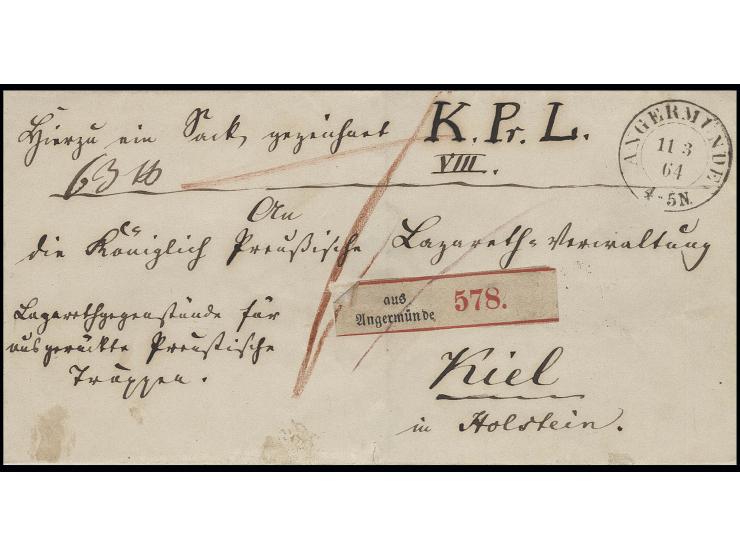 Hierzu ein Sack, gezeichnet K. Pr. L.
VIII.
63 ℔
ANGERMÜNDE
11 3
64
4-5N.
An
die Königlich Preußische Lazareth=Verwaltung
aus
Angermünde 578.
Lazarethgegenstände für
ausgerückte Preußische
Truppen.
Kiel
in Holstein.